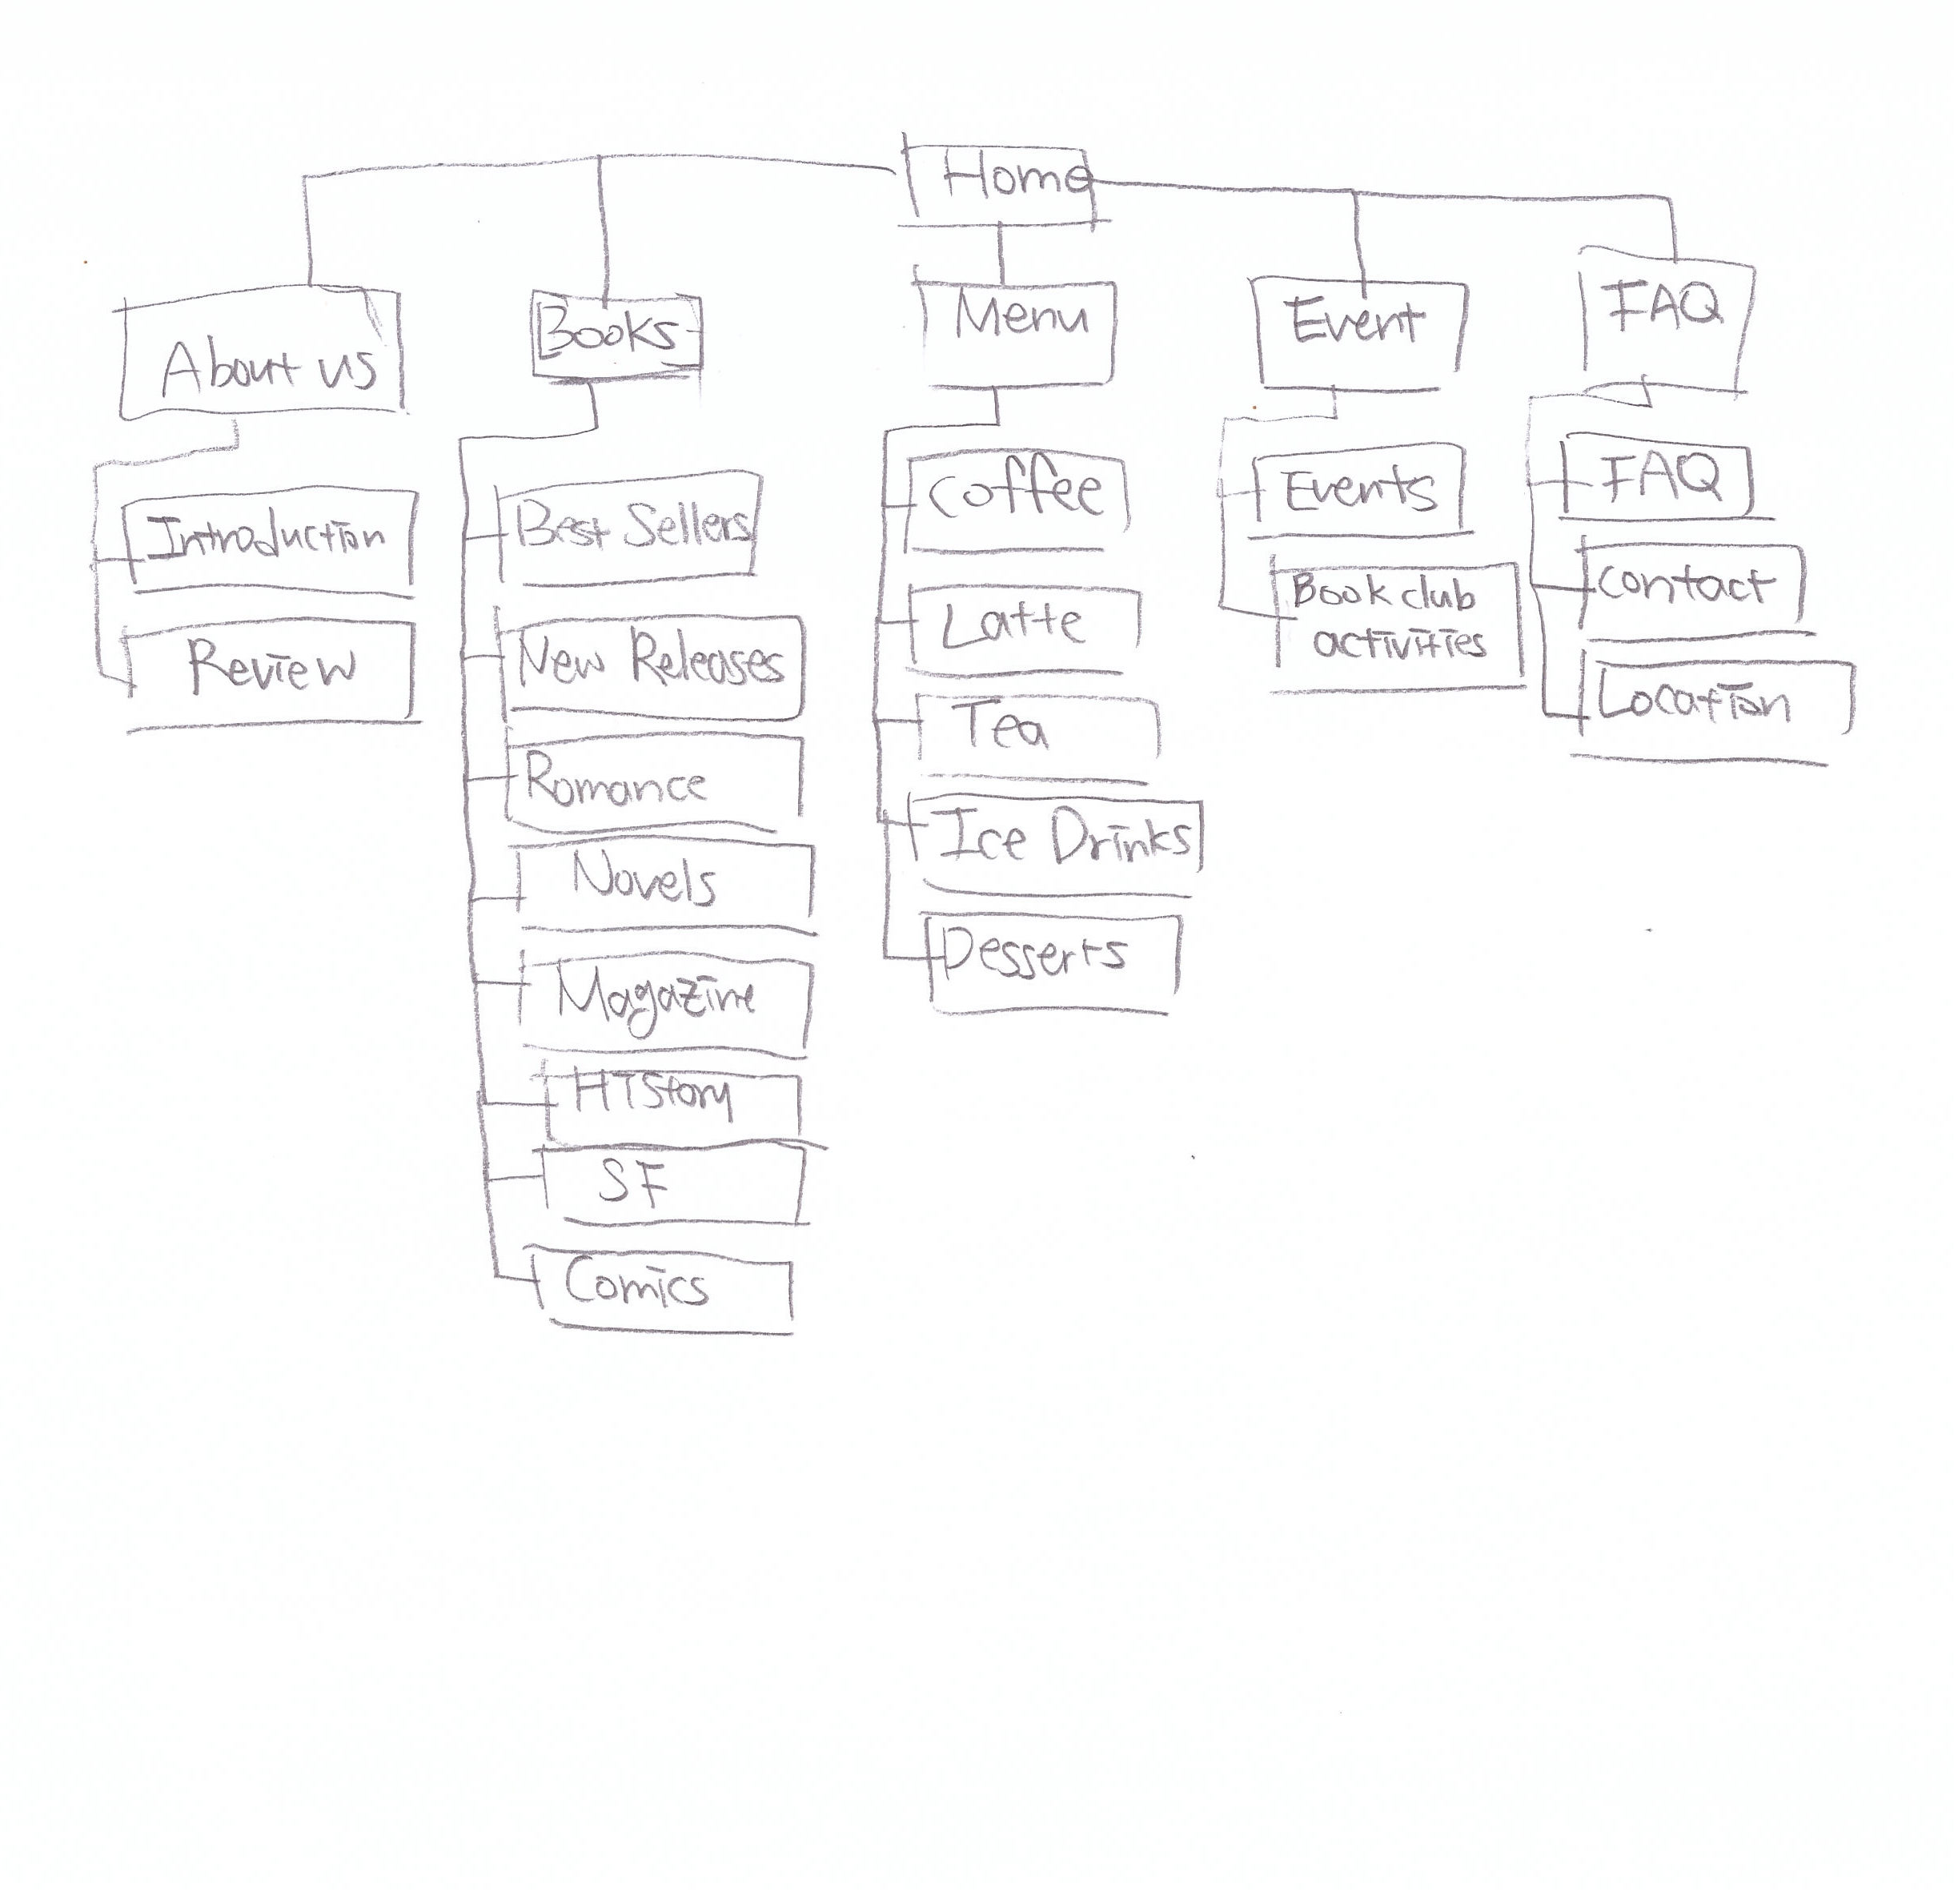 Home
About us
Books
Menu
Event
FAQ
Introduction
Review
Best Sellers
New Releases
Romance
Novels
Magazine
HIStory
SF
Comics
Coffee
Latte
Tea
Ice Drinks
Desserts
Events
Book club
activities
FAQ
contact
Location